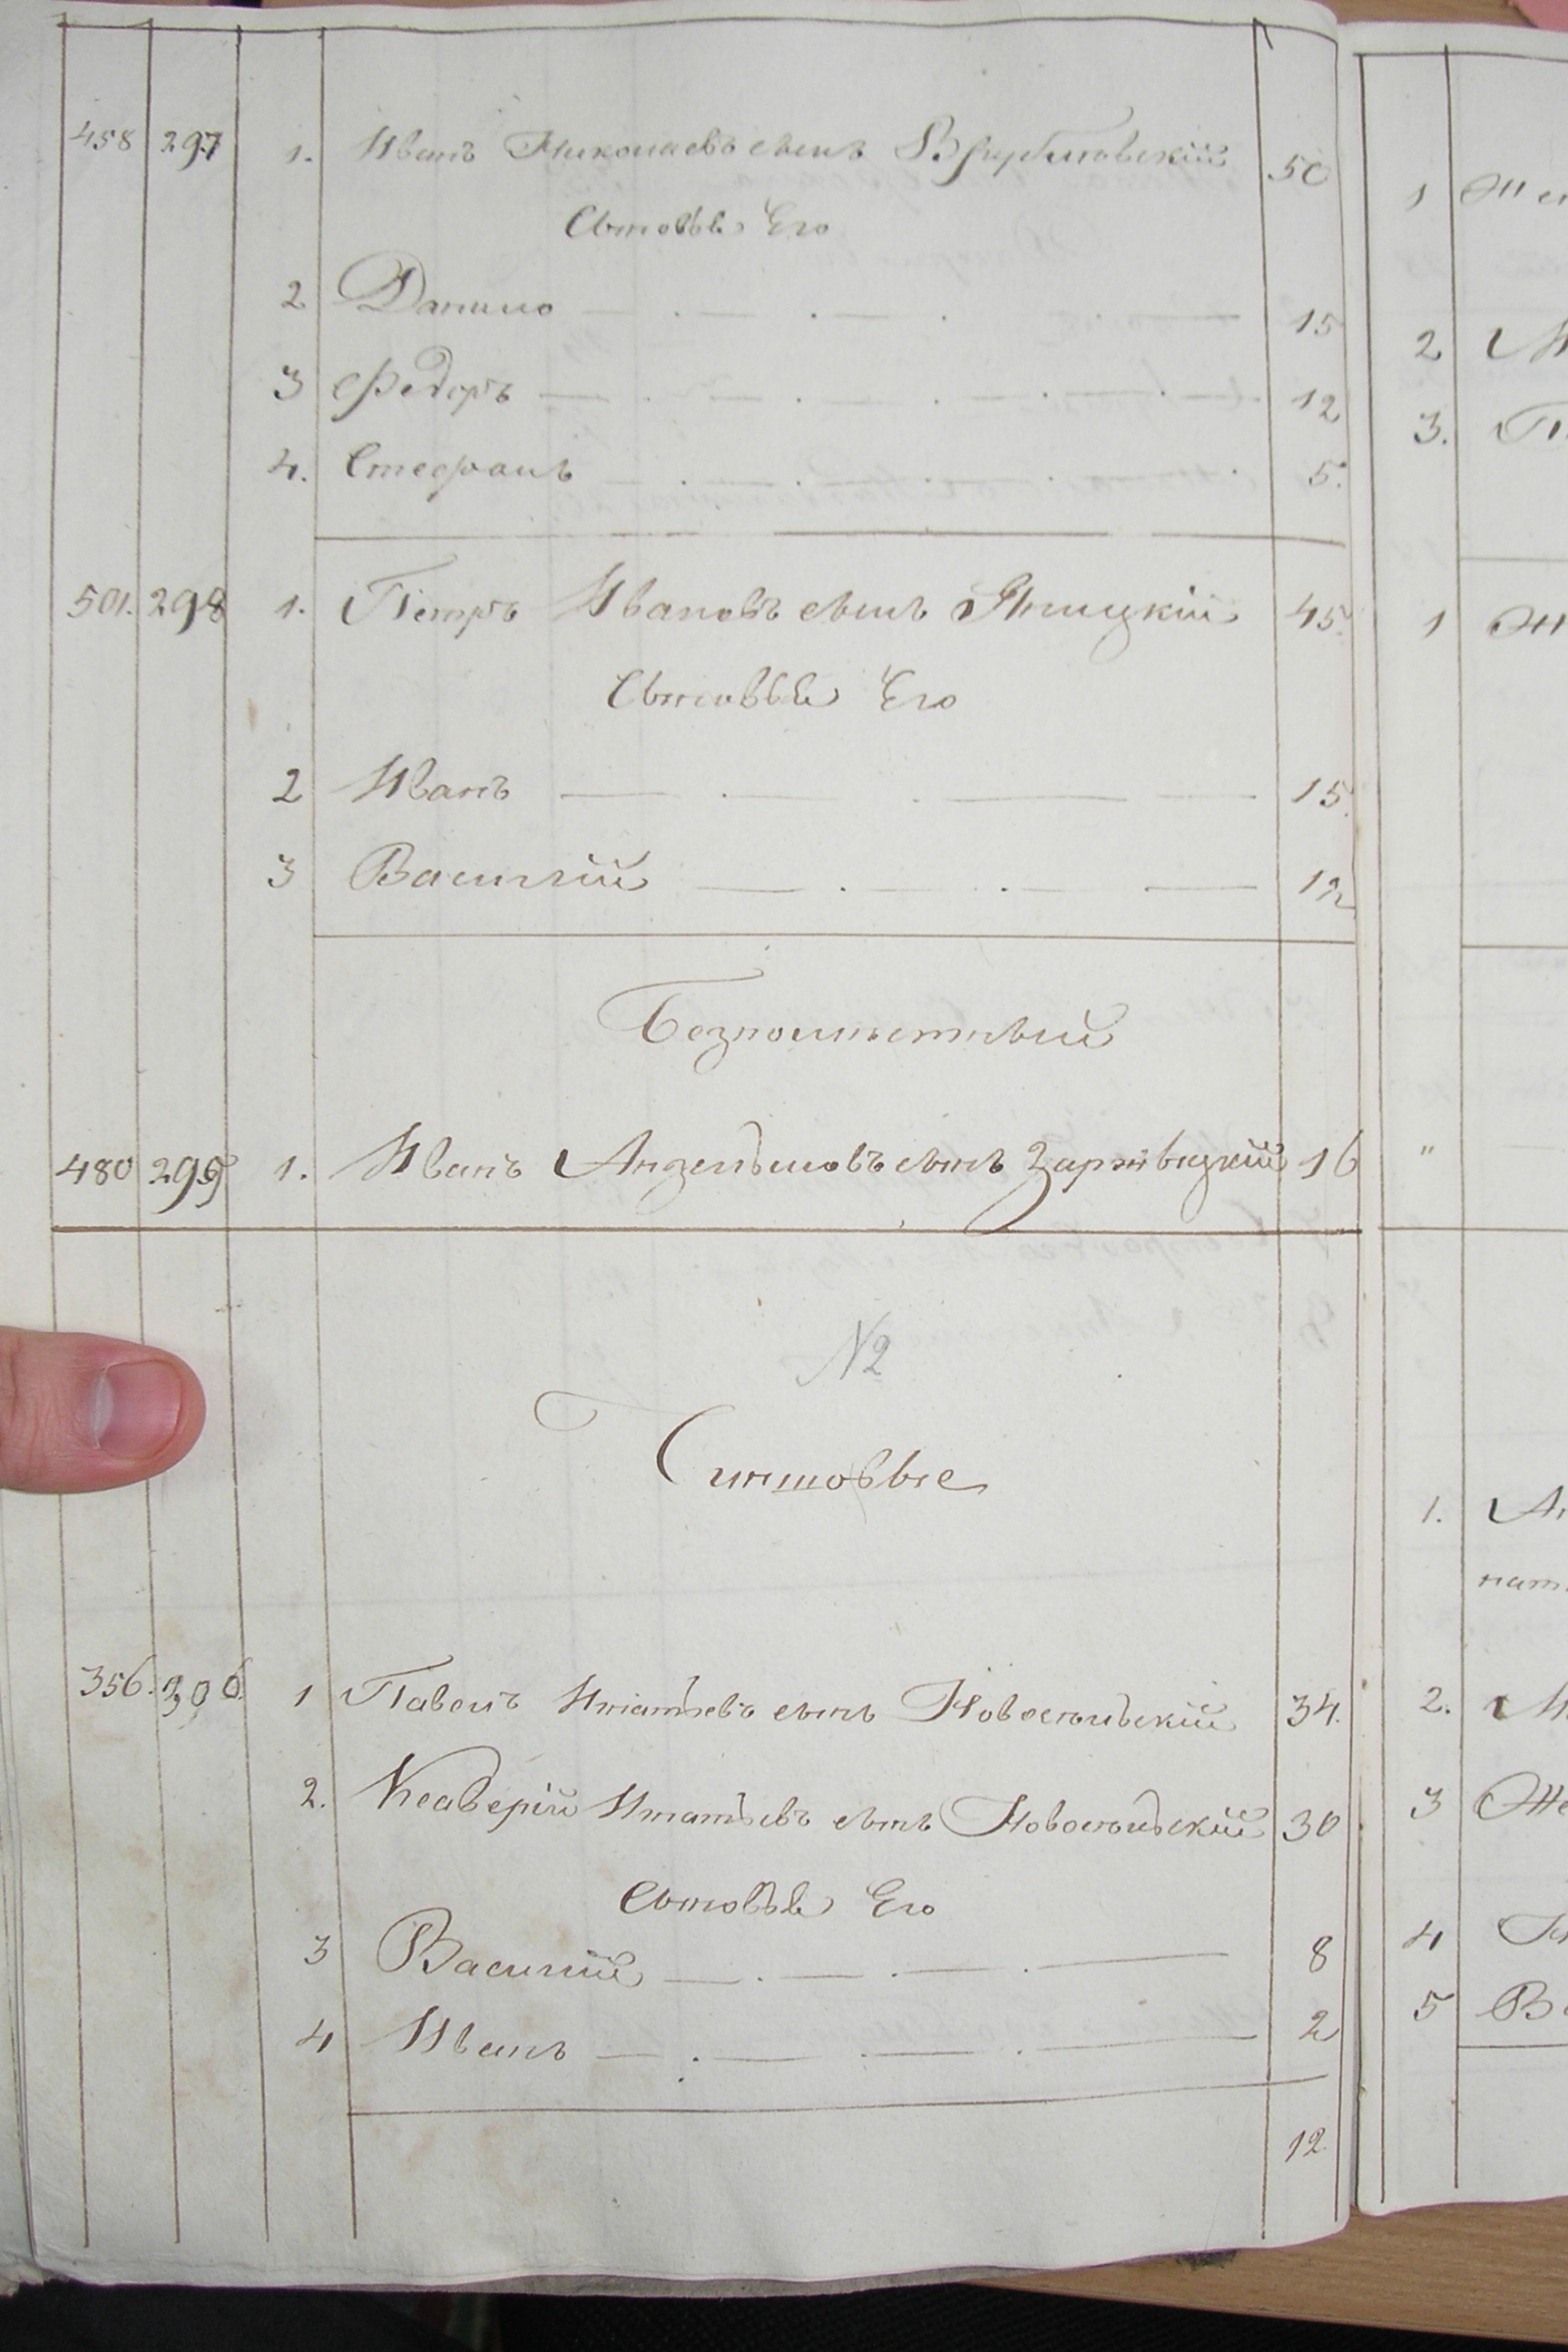 458 297 1. Иванъ Николаевъ сынъ Врублювскій 50
Сыновья Его
2 Данило 15
3 Федоръ 12
4. Стефанъ 5.
501. 298 1. Петръ Ивановъ сынъ 45
Сыновья Его
2 Иванъ 15.
3 Василій 12
Безпоместный
480 299 1. Иванъ сынъ Заржецкій 16
№2
Чиншовые
356. 300. 1 Павелъ Игнатьевъ сынъ Новосельскій 34.
2. Ксаверій Игнатьевъ сынъ Новосельскій 30
Сыновья Его
3 Василий 8
4 Иванъ 2
12.
1
2
3.
1
"
1.
2.
3
4
5